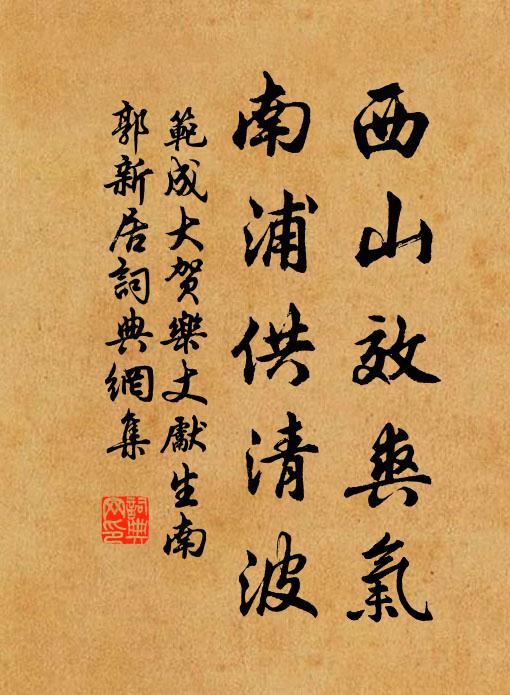 西山效爽氣
南浦供清波
範成大賀樂丈獻生南
郭新居詞典網集
詞典
网印